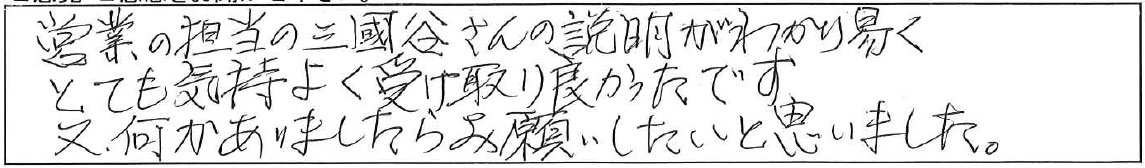 営業の担当の三國谷さんの説明がわかり易く
とても気持よく受け取り良かったです
又、何かありましたらお願いしたいと思いました。